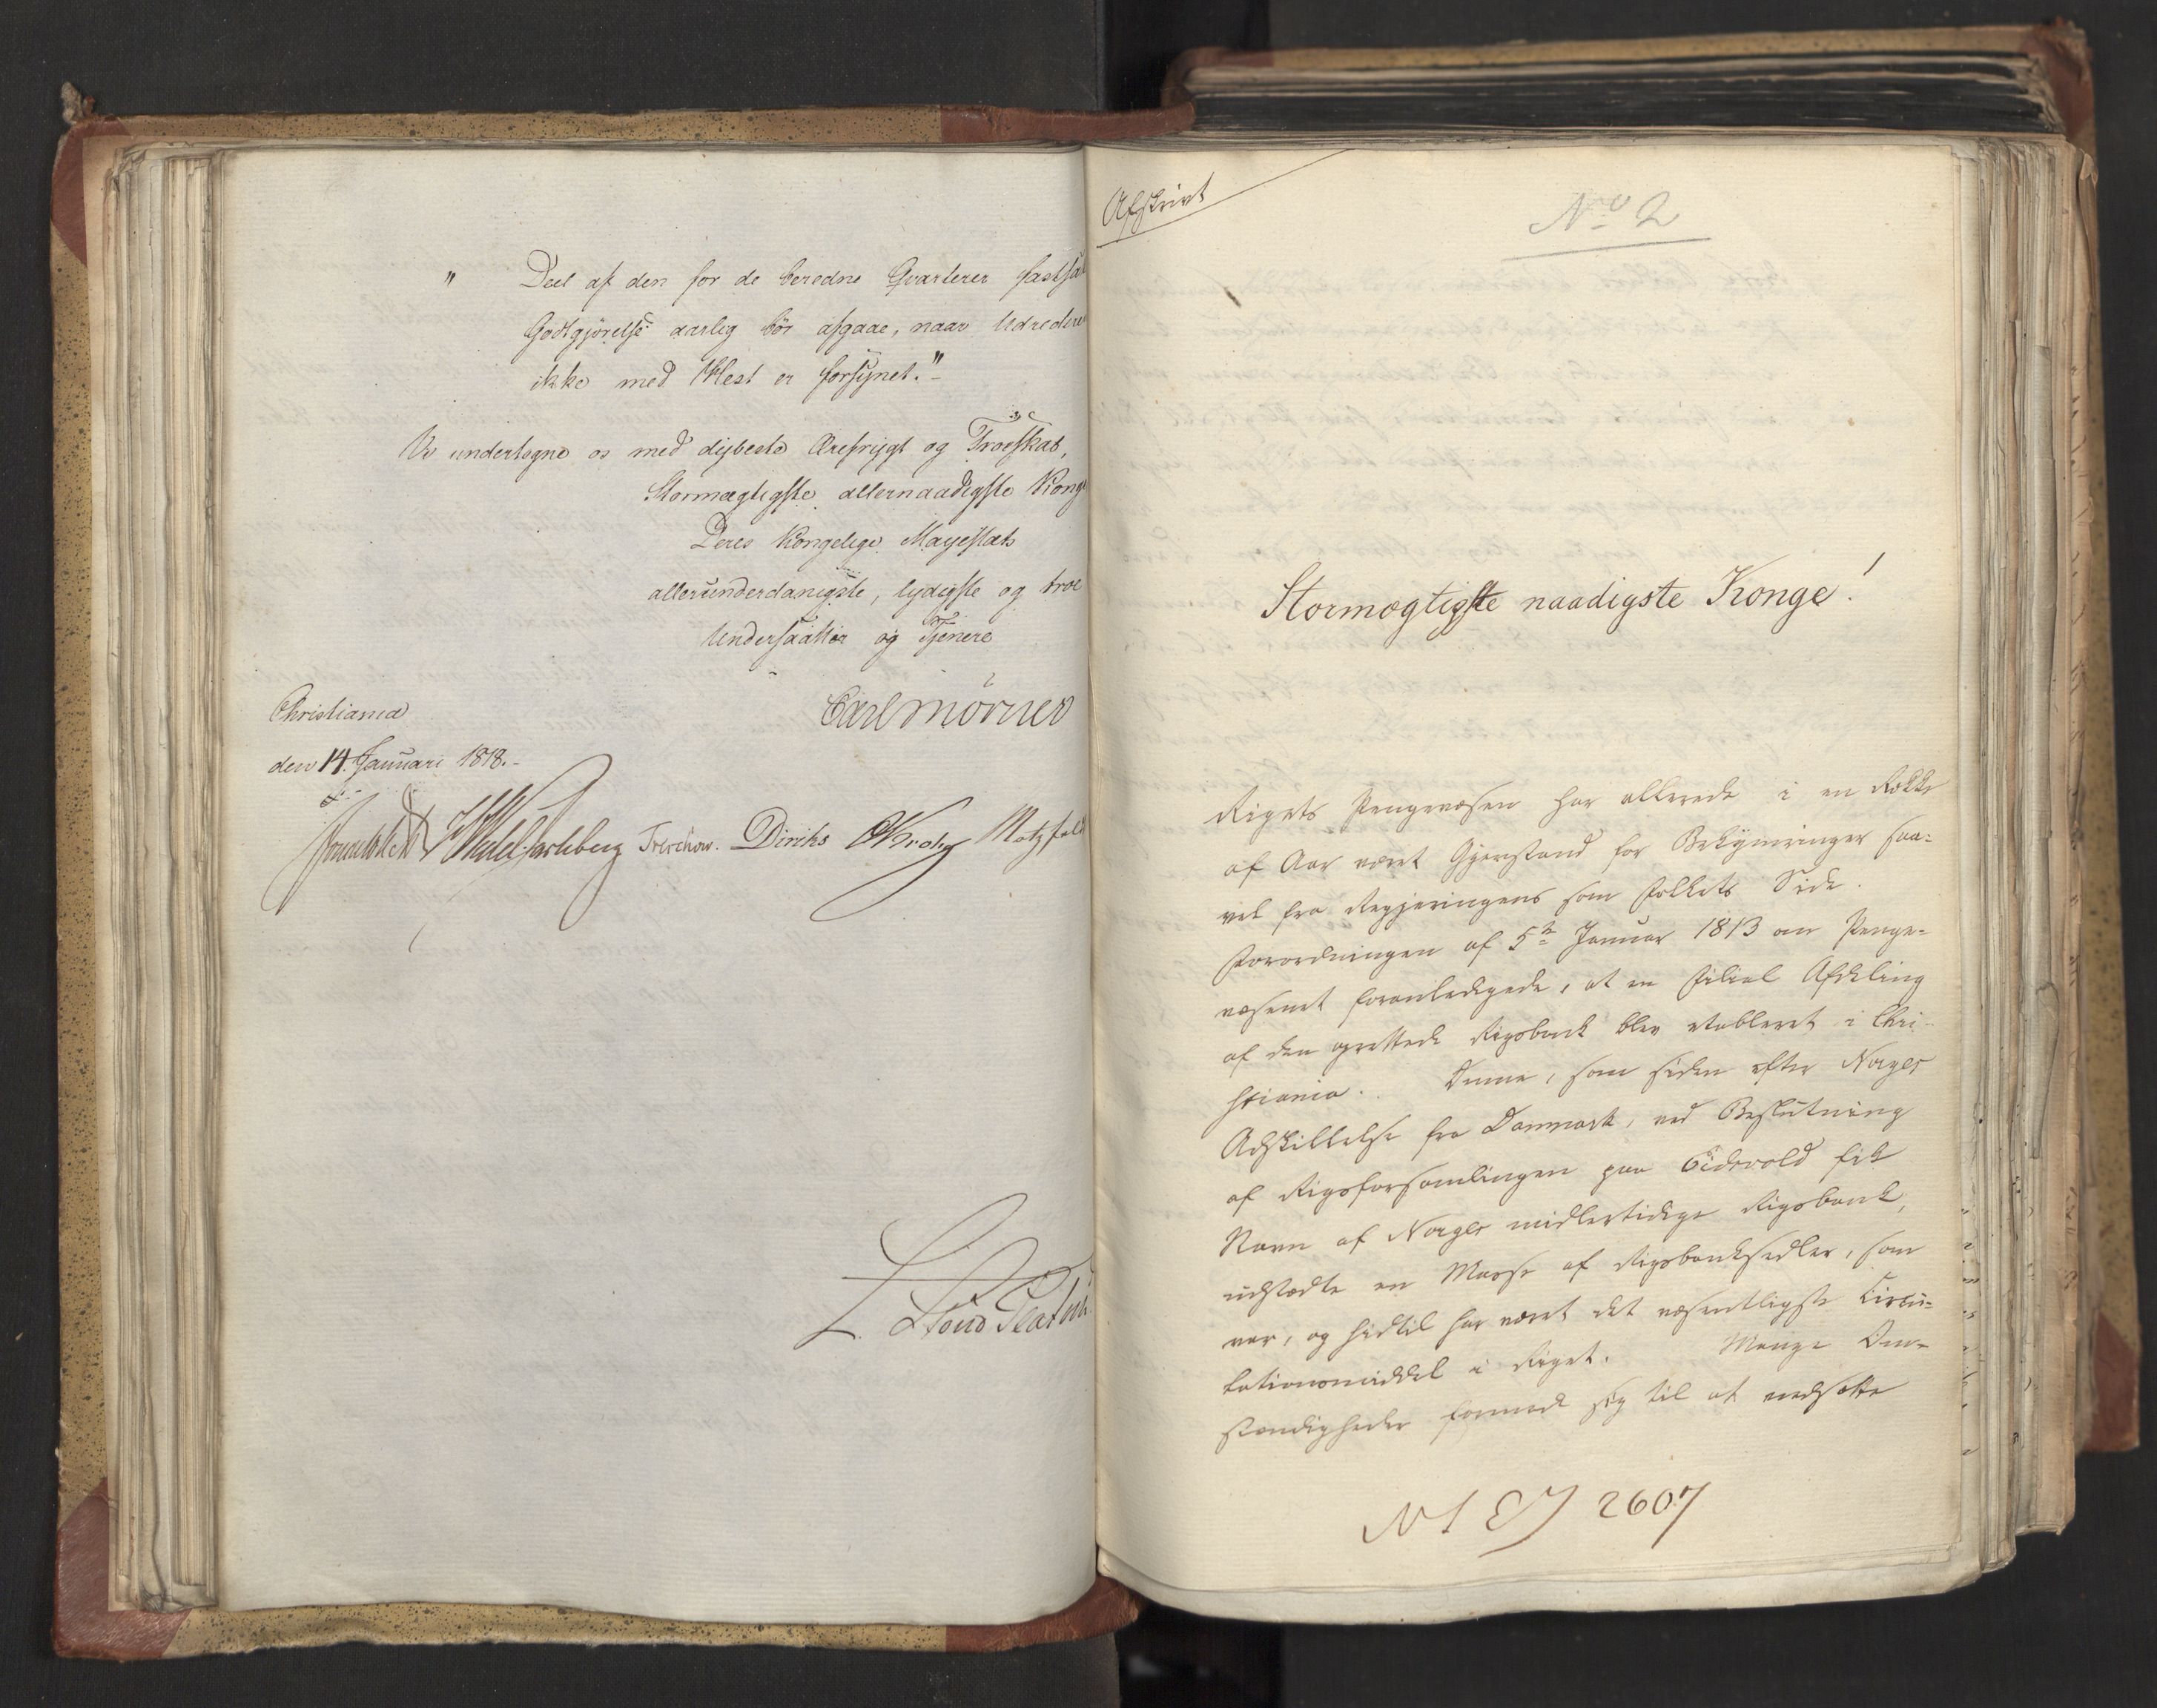 " Deel af den for de beredne Qvarterer fastsat
Godtgjørelse aarlig bør afgaae, naar Udredere
ikke med Hest er forsynet."
Vi undertegne os med dybeste Ærefrygt og Troeskab,
Stormægtigste, allernaadigste Konge
Deres Kongelige Mayestæts
allerunderdanigste, lydigste og troe
Undersaatter og Tjenere
Carl Mörner
Christiania
den 14. Januari 1818.
Sommerhielm Wedel Jarlsberg Treschow. Diriks Krohg Motzfeldt
L. Stoud Platou
Afskrivt
No 2
Stormægtigste naadigste Konge!
Rigets Pengevæsen har allerede i en Række
af Aar været Gjenstand for Bekymringer saa-
vel fra Regjeringens som Folkets Side.
Forordningen af 5te Januar 1813 om Penge-
væsenet foranledigede, at en Filial Afdeling
af den oprettede Rigsbank blev etableret i Chri-
stiania. Denne, som siden efter Norges
Adskillelse fra Danmark, ved Beslutning
af Rigsforsamlingen paa Eidsvold fik
Navn af Norges midlertidige Rigsbank,
udstædte en Masse af Rigsbanksedler, som
var, og hidtil har været det væsentligste Circu-
lationsmiddel i Riget. Mange Om-
stændigheder forenede sig til at nedsætte
2607